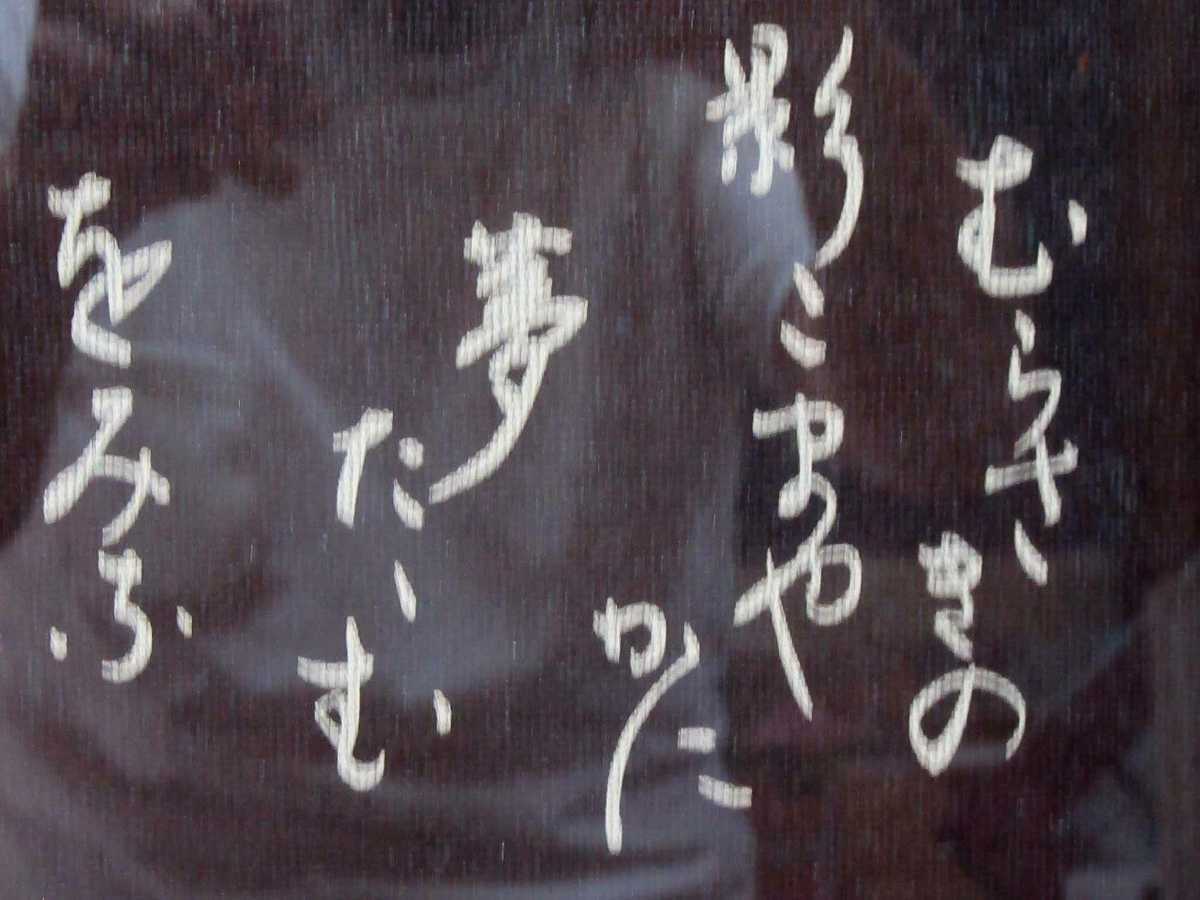 むらさきの
影こまや
かに
夢
たゝむ
をみふ